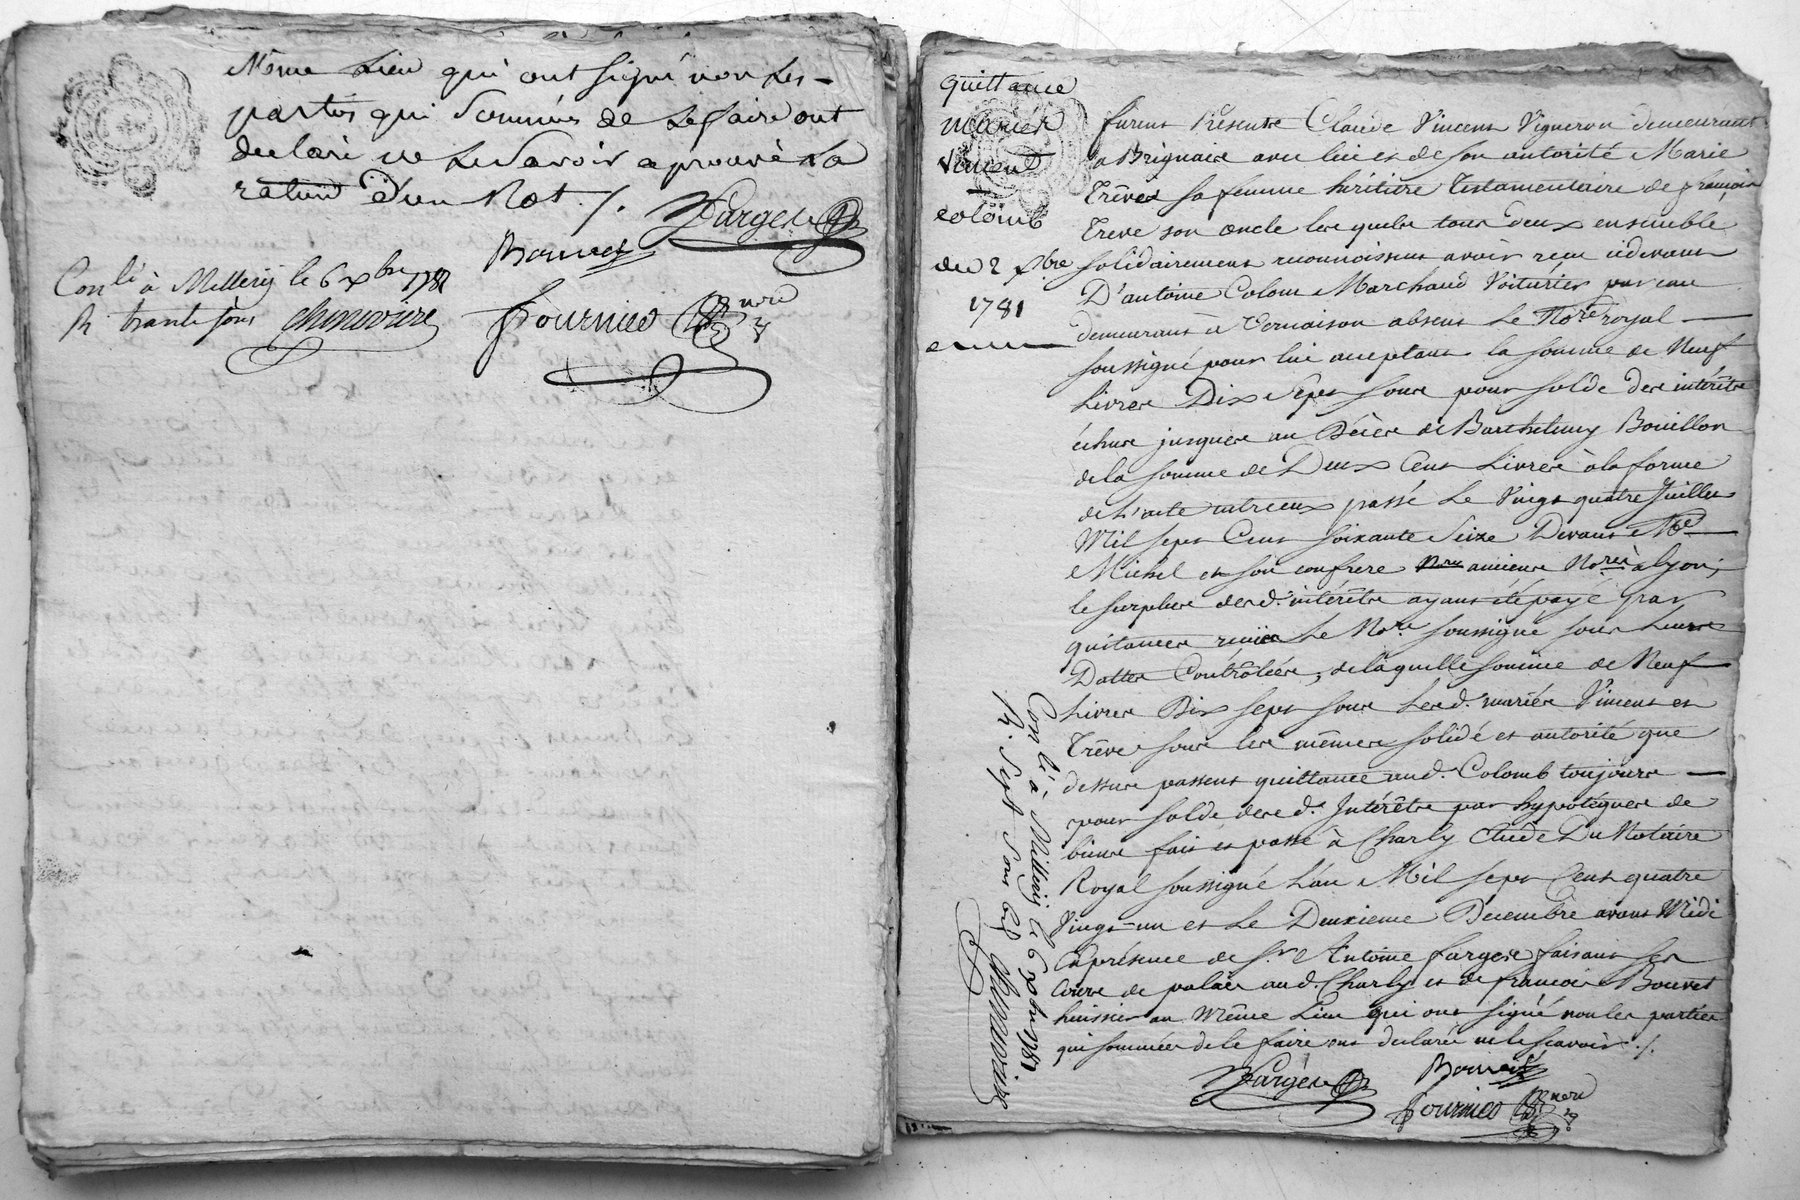 Même Lieu qui ont signé non les
parties qui Sommées de Le faire ont
declaré ne Le Savoir aprouvé la
rature d'un Mot ./.
Farges
Bouvet
Fournier Nore
Conlé à Millery le 6 xbre 1781
R. trante sous
quittance
Mariés
Vincent
colomb
du 2 xbre
1781
furent Présents Claude Vincent Vigneron demeurant
a Brignaix avec lui et de son autorité Marie
Trêves sa femme héritiere Testamentaire de françois
Treve son oncle les quels tous deux ensemble
solidairement reconnoissent avoir reçu cidevant
D'antoine Colom Marchand Voiturier par eau
demeurant à Vernaison absent Le Nore royal
soussigné pour lui acceptant la somme de Neuf
Livres Dix Sept sous pour solde des intérêts
échus jusques au Décès de Barthelemy Bouillon
de la somme de Deux Cent Livres à la forme
de L'acte entreeux passé Le Vingt quatre Juillet
Mil sept Cent soixante Seize Devant Me
Michel et son confrere anciens Nores à Lyon,
le surplus desd. intérêts ayant été payé par
quitances reçues Le Nore soussigné sous Leurs
Dattes Contrôlées, de laquelle somme de Neuf
Livres Dix sept sous Lesd. mariés Vincent et
Trêve sous les mêmes solidé et autorité que
dessus passent quittance aud. Colomb toujours
pour solde desd. Intérêts par hypotéques de
biens fait et passé à Charly Etude Du Notaire
Royal soussigné L'an Mil sept Cent quatre
Vingt-un et Le Deuxieme Décembre avant Midi
En présence de Sr Antoine farges faisant ses
cours de palais aud. Charly et de francois Bouvet
huissier au Même Lieu qui ont signé non les parties
qui sommées de le faire ont declaré ne le scavoir ./.
Farges
Bouvet
Fournier Nore
Conlé à Millery le 6 xbre 1781
R. Sept Sous